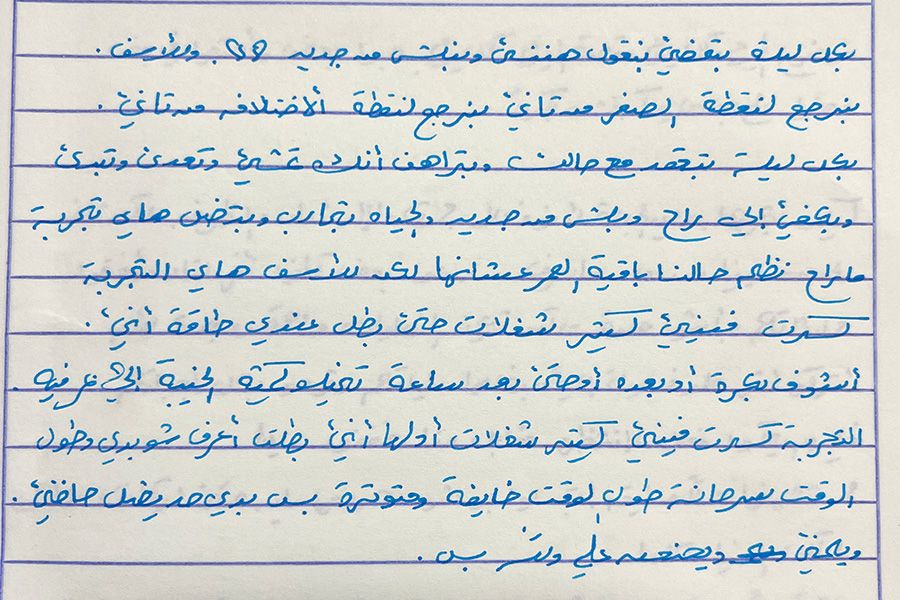 بكل ليلة بتمضي بنقول هننسى وبنبلش من جديد وللأسف .
بنرجع لنقطة الصفر من تاني بنرجع لنقطة الأختلاف من تاني .
بكل ليلة بتقعد مع حالك وبتراهن أنك تمشي وتعدي وتبدى
ويكفي الي راح وبلش من جديد والحياه تجارب وبتضل هاي تجربة
ماراح نظلم حالنا باقية العمر عشانها لكن للأسف هاي التجربة
كسرت فيني كتير شغلات حتى بطل عندي طاقة أني .
أشوف بكرة أو بعده أو حتى بعد ساعة تخيلو كمية الخيبة الي غرفيه .
التجربة كسرت فيني كتير شغلات أولها أني بطلت أعرف شو بدي وطول
الوقت سرحانة طول الوقت خايفة ومتوترة بس بدي حد يضل حاضني .
ويحن علي وبس .